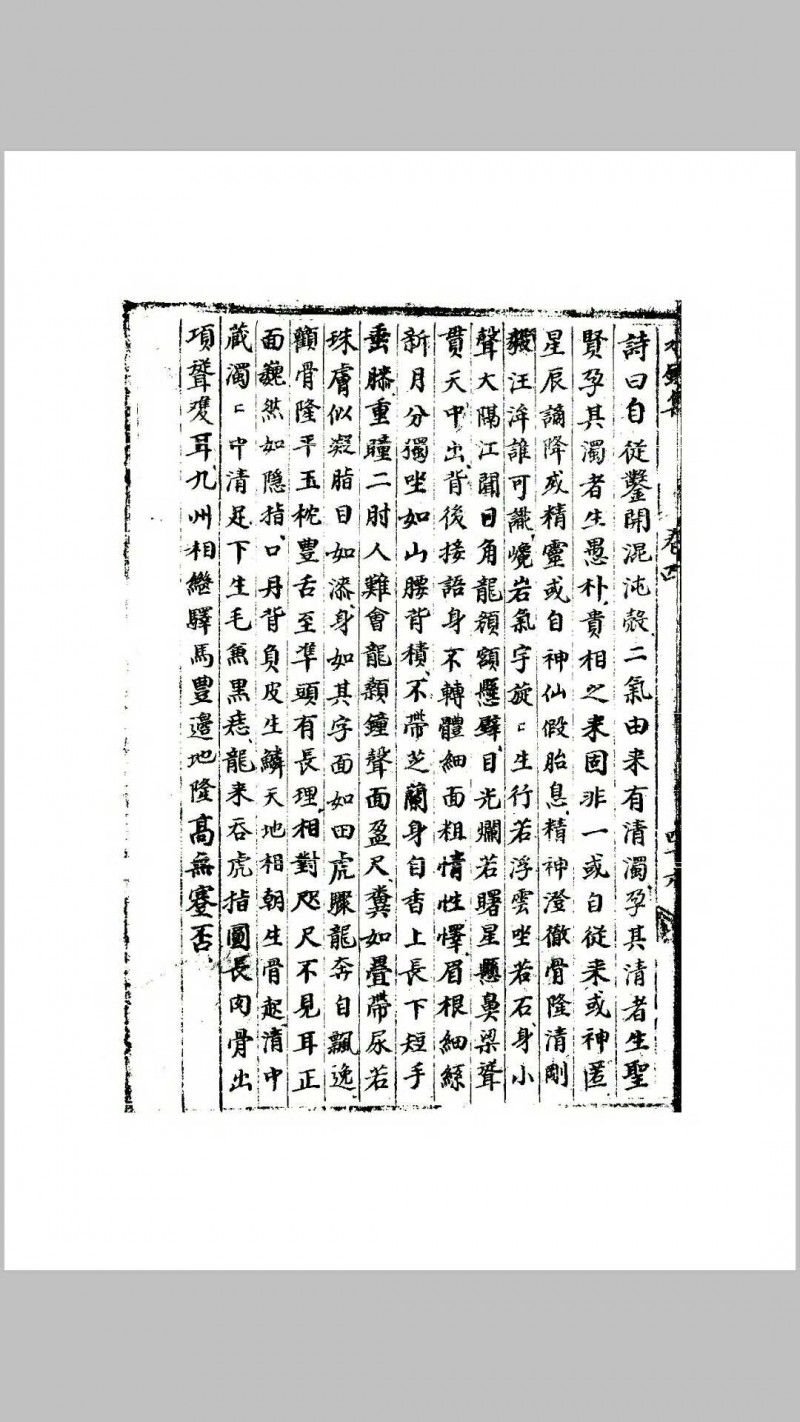 水鏡集 卷四
詩曰自從鑿開混沌殼二氣由来有清濁孕其清者生聖
賢孕其濁者生愚朴貴相之来固非一或自從来或神匿
星辰謫降或精靈或自神仙假胎息精神澄徹骨隆清剛
毅汪洋誰可識巉岩氣宇旋〻生行若浮雲坐若石身小
聲大隔江聞日角龍顔額懸壁目光爛若曙星懸鼻梁聳
貫天中出背後接語身不轉體細面粗情性懌眉根細絲
新月分獨坐如山腰背積不帶芝蘭身自香上長下短手
垂膝重瞳二肘人難會龍顙鐘聲面盈尺糞如疊帶尿若
珠膚似凝脂目如漆身如其字面如田虎驟龍奔自飄逸
顴骨隆平玉枕豐舌至準頭有長理相對咫尺不見耳正
面巍然如隐指口丹背負皮生鱗天地相朝生骨起清中
藏濁〻中清足下生毛兼黒痣龍来吞虎指圓長肉骨出
項聳雙耳九州相繼驛馬豐邉地隆高無蹇否